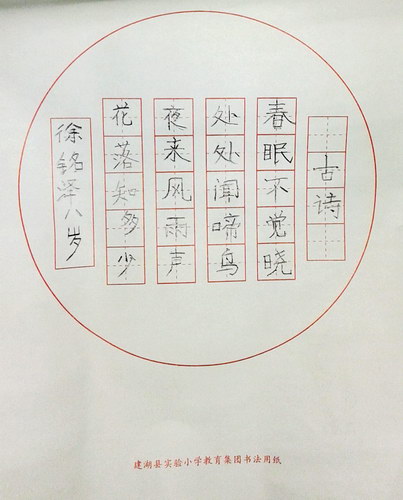 古诗
春眠不觉晓
处处闻啼鸟
夜来风雨声
花落知多少
徐铭泽八岁
建湖县实验小学教育集团书法用纸